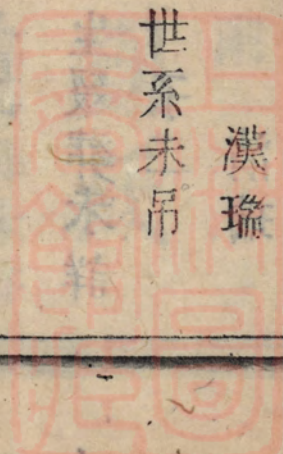 漢瑞
世系未吊